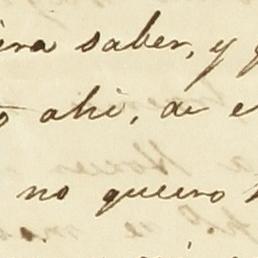 era saber, y
ahi, de
no queiro